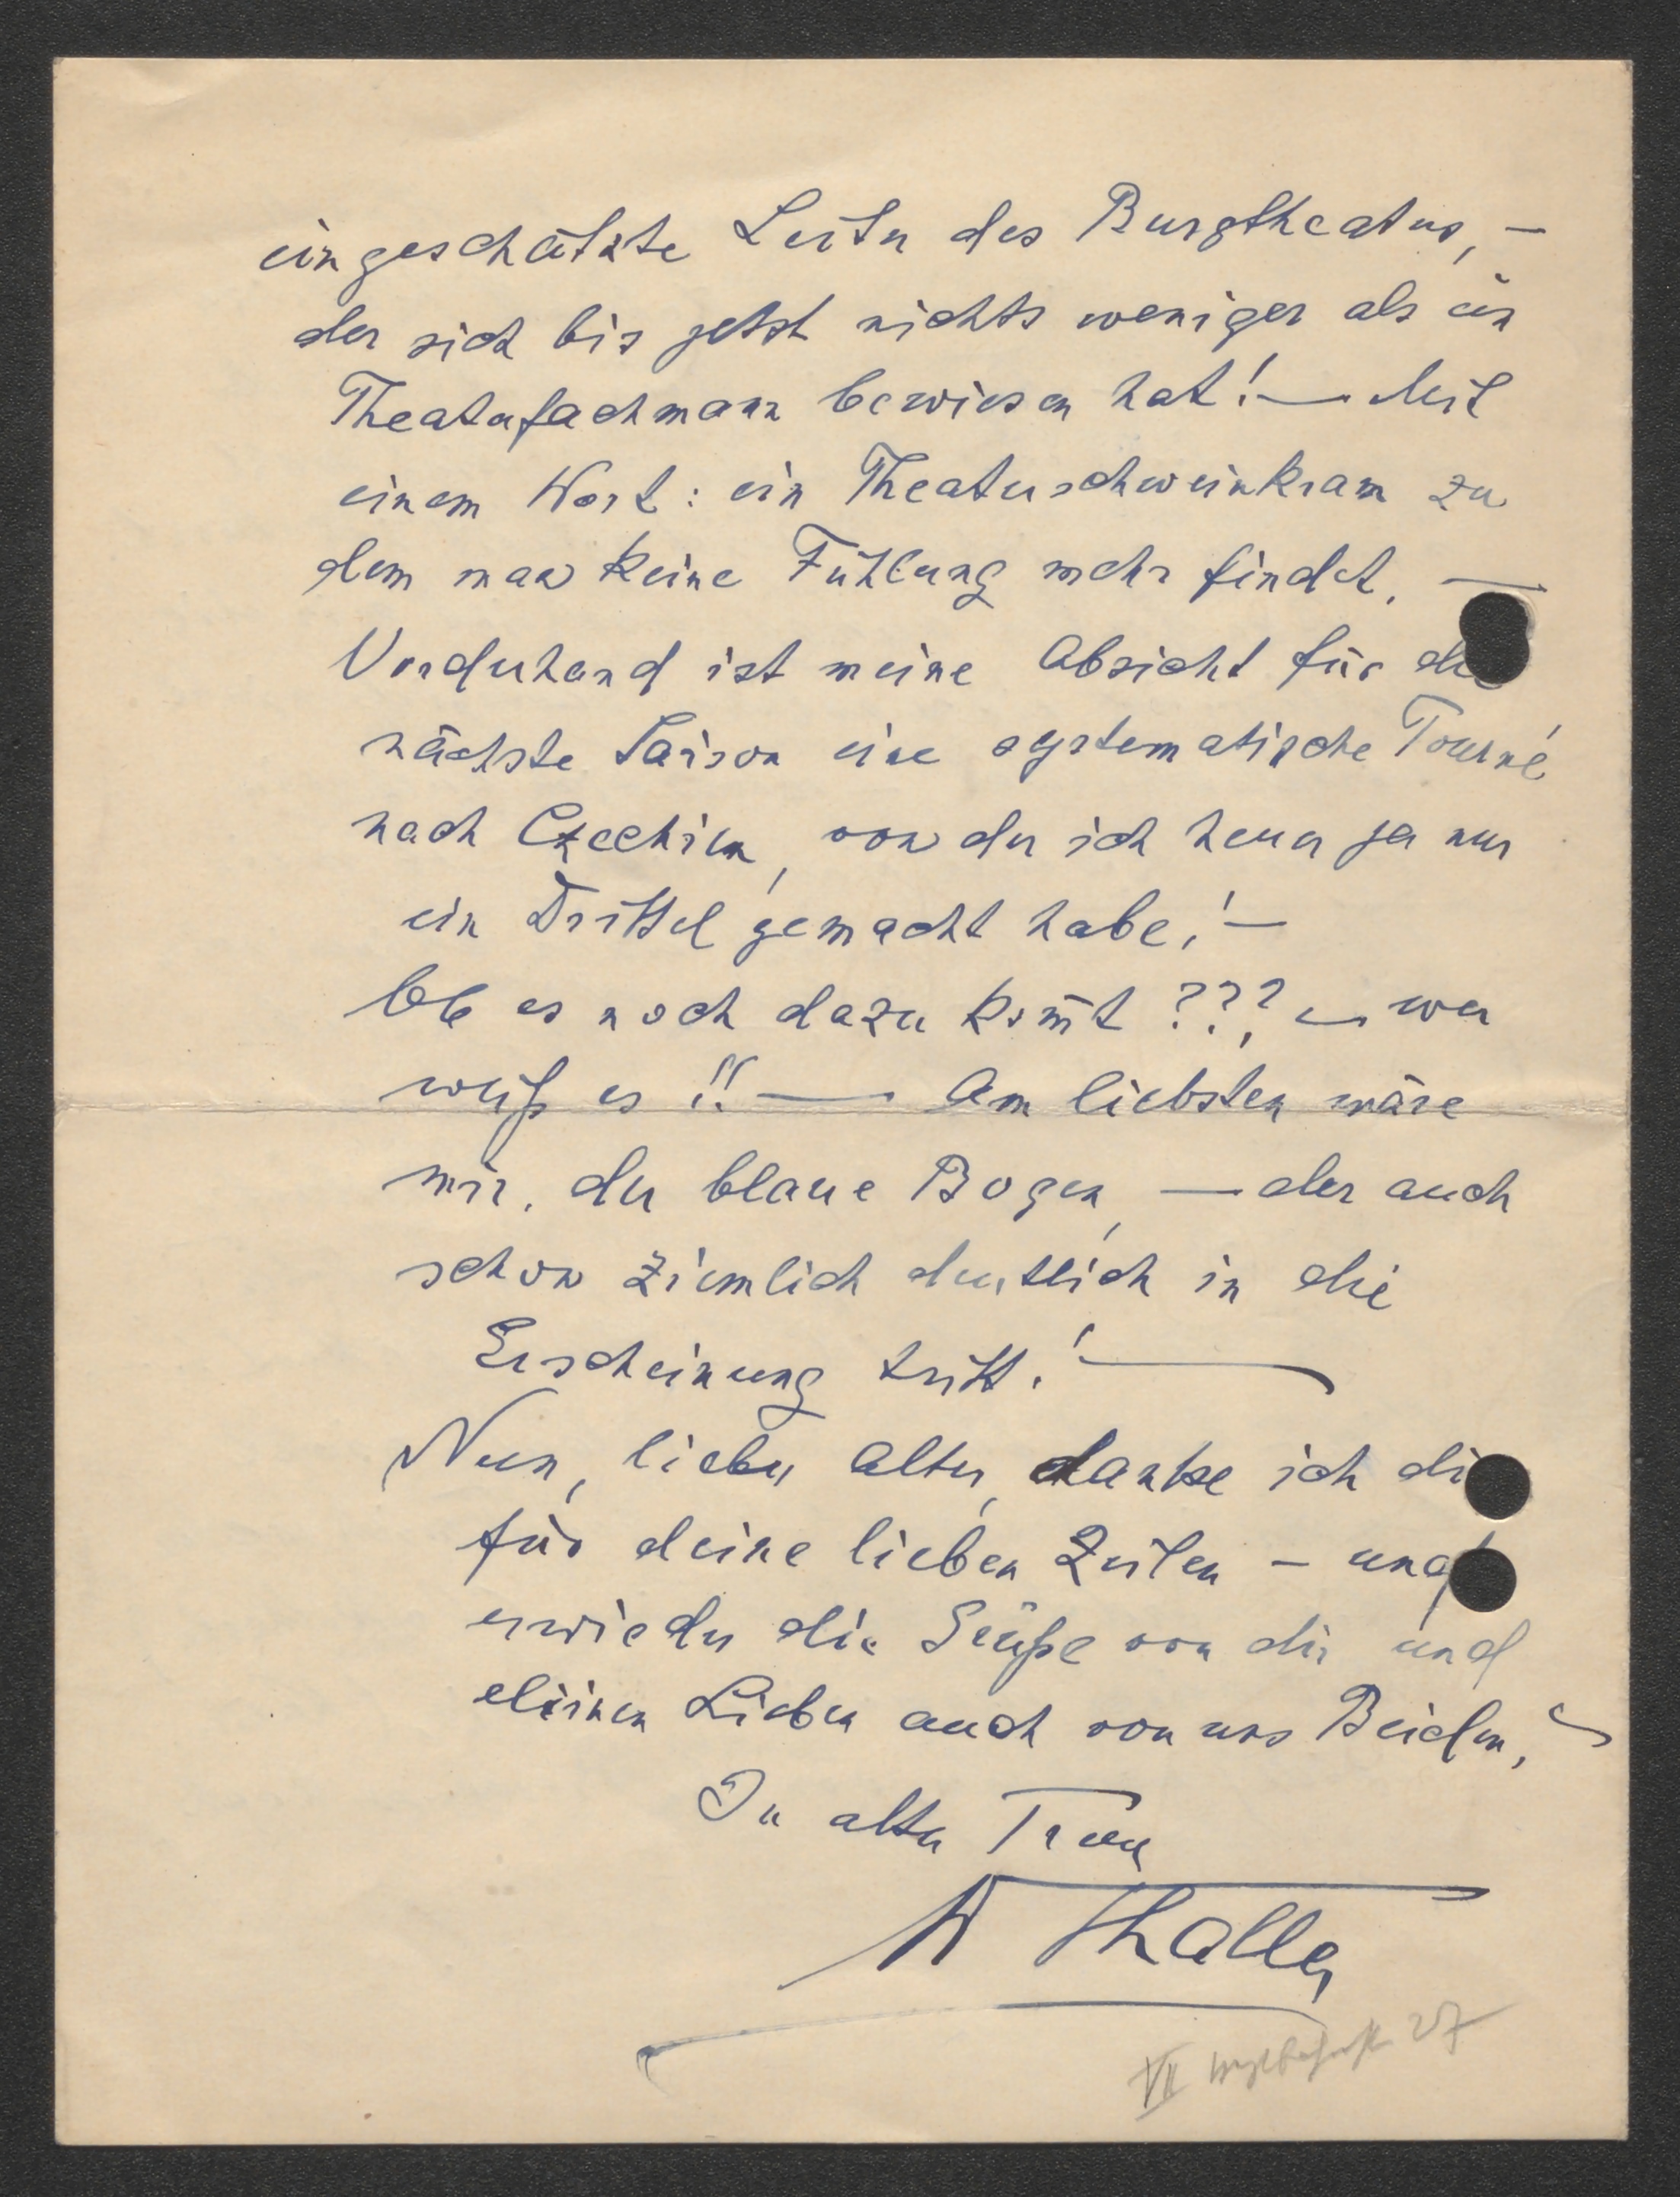 eingeschätzte Leiter des Burgtheaters, –
der sich bis jetzt nichts weniger als ein
Theaterfachmann bewiesen hat! — Mit
einem Wort: ein Theaterschweinkram zu
dem man keine Fühlung mehr findet. —
Vorderhand ist meine Absicht für die
nächste Saison eine systematische Tourné
nach Czechien, von der ich heuer ja nur
ein Drittel gemacht habe! –
Ob es noch dazu kom̄t ??? – wer
weiß es !! — Am liebsten wäre
mir, der blaue Bogen, — der auch
schon ziemlich deutlich in die
Erscheinung tritt! —
Nun, lieber Alter, danke ich dir
für deine lieben Zeilen – und
erwieder die Grüße von dir und
deinen Lieben auch von uns Beiden, –
In alter Treue
W Thaller
VII 27